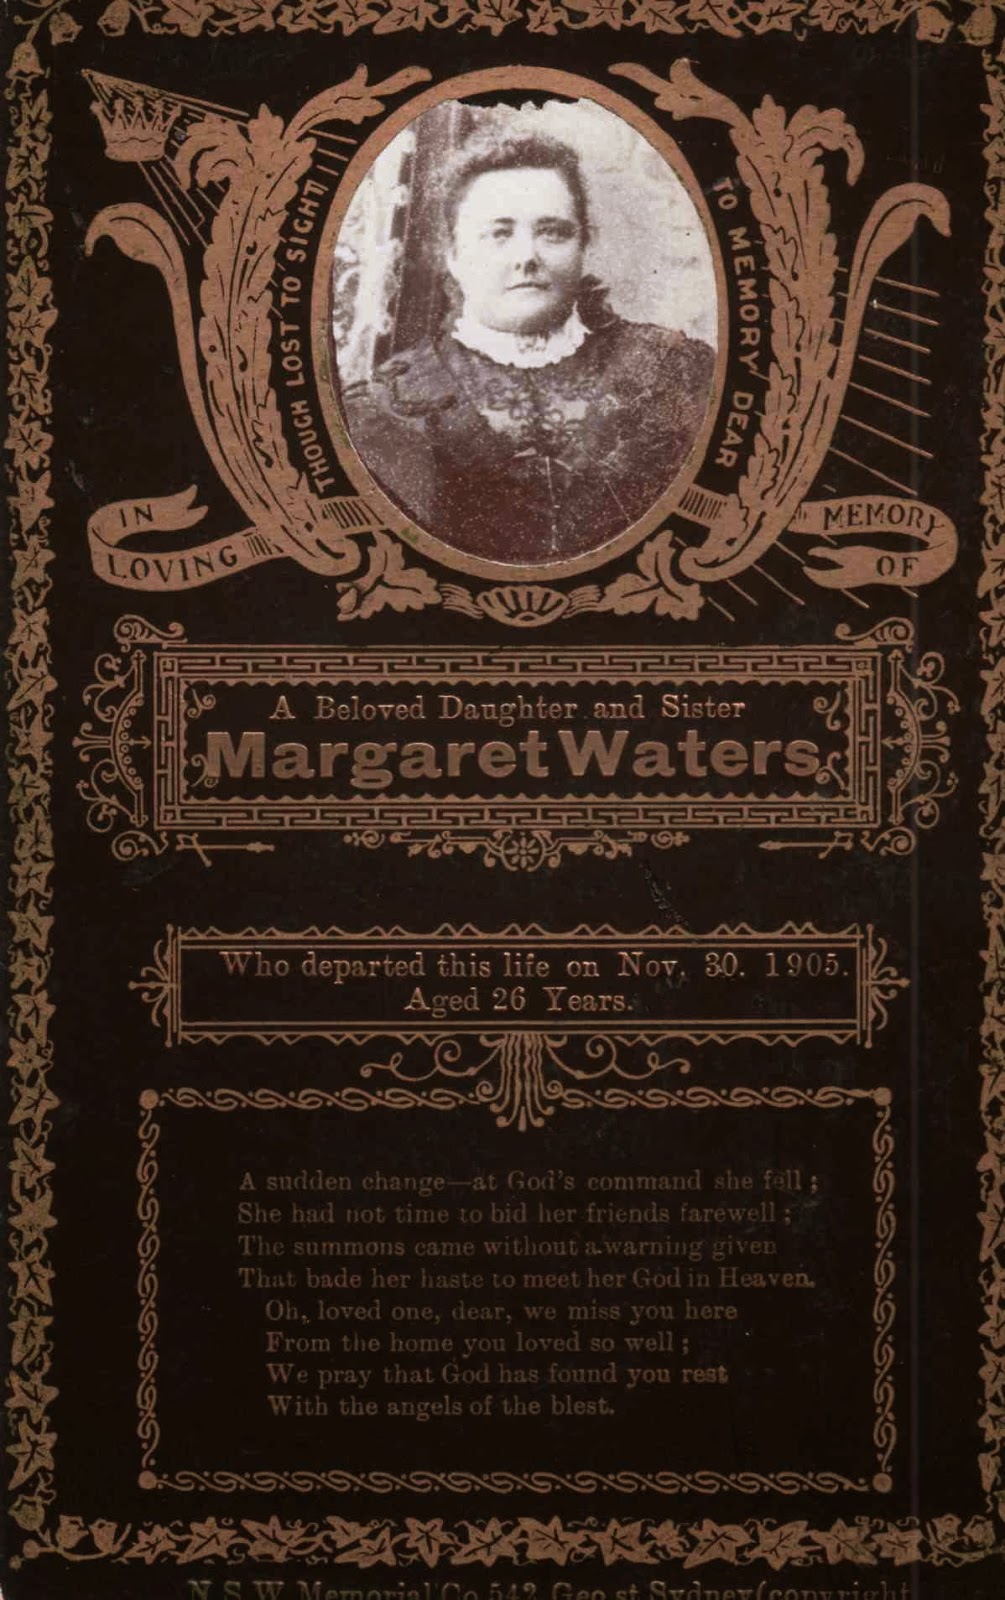 THOUGH LOST TO SIGHT
TO MEMORY DEAR
IN
LOVING
MEMORY
OF
A Beloved Daughter and Sister
Margaret Waters
Who departed this life on Nov. 30. 1905.
Aged 26 Years.
A sudden change—at God's command she fell ;
She had not time to bid her friends farewell ;
The summons came without a warning given
That bade her haste to meet her God in Heaven.
Oh, loved one, dear, we miss you here
From the home you loved so well ;
We pray that God has found you rest
With the angels of the blest.
N.S.W. Memorial Co 542 Geo st Sydney (copyright